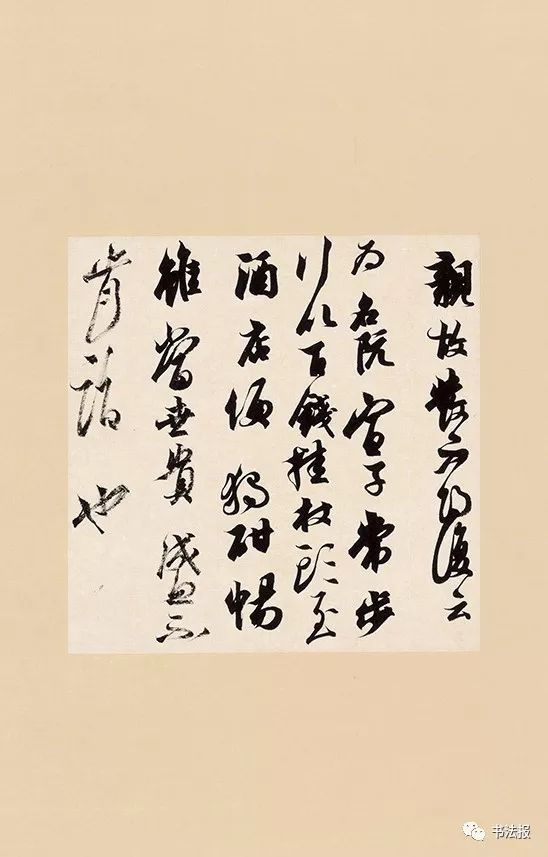 親故不得復云
為名阮宣子常步
行以百錢挂杖頭至
酒店便獨酣暢
雖當世貴盛不
肯詣也
书法报